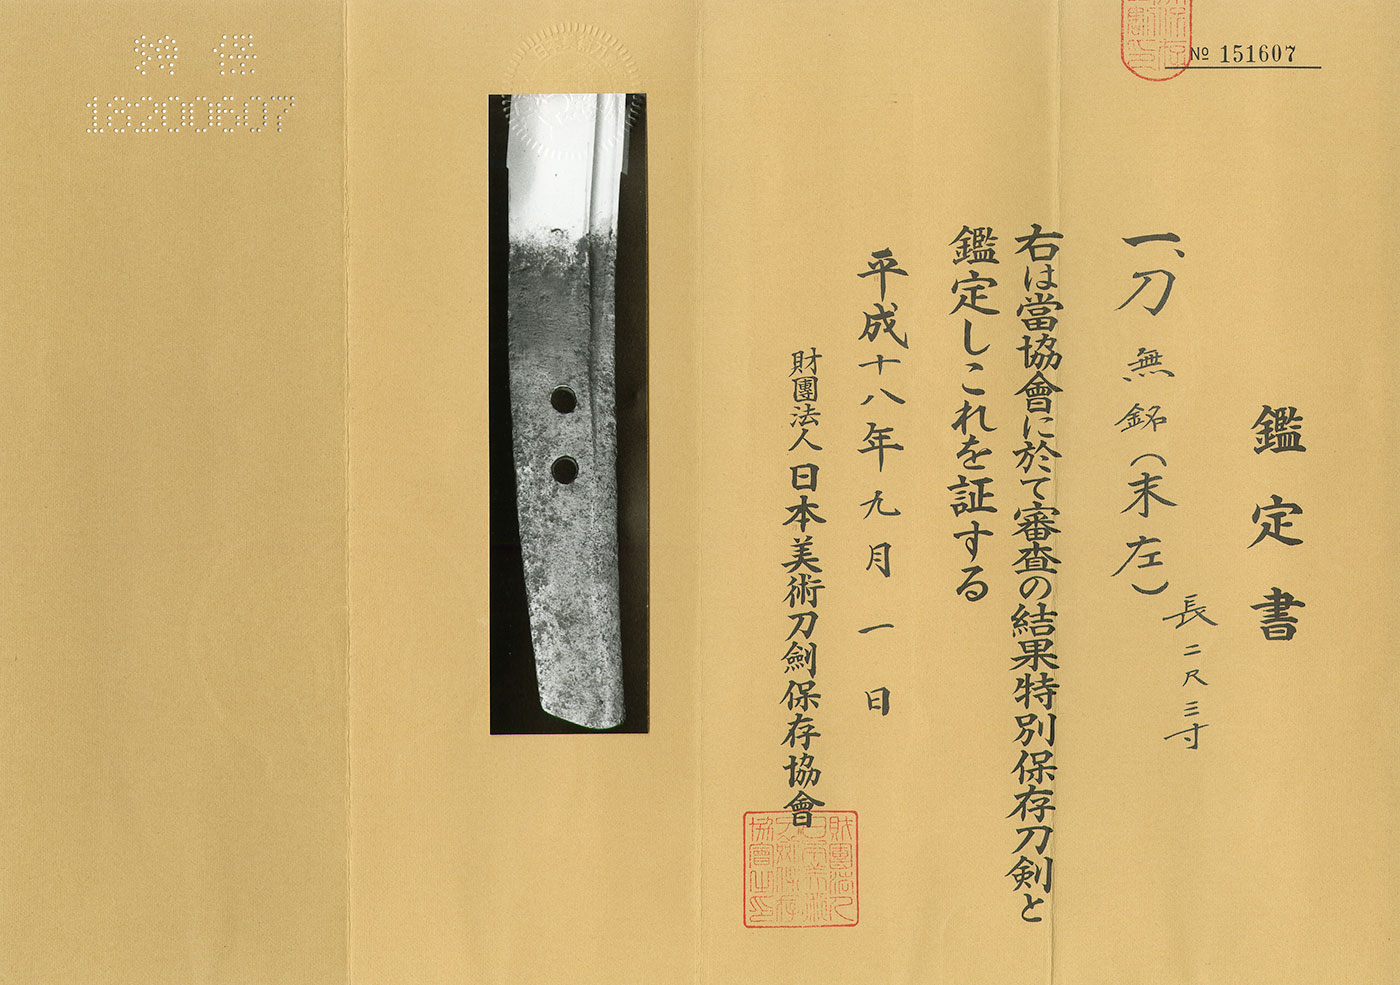 № 151607
鑑定書
一、刀 無銘（末左）
長二尺三寸
右は當協會に於て審査の結果特別保存刀剣と
鑑定しこれを証する
平成十八年九月一日
財團法人 日本美術刀劍保存協會
財團法人
日本美術
刀劍保存
協會之印
特保
18200607